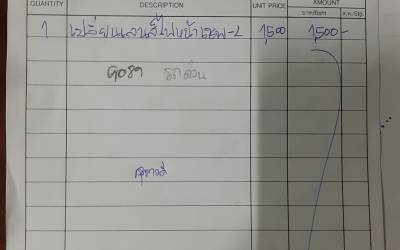 QUANTITY DESCRIPTION UNIT PRICE AMOUNT
บาท/Baht ส.ต./Stg.
1 เปลี่ยนเลนส์ไฟหน้า -L 1,500 1,500-
รถด่วน